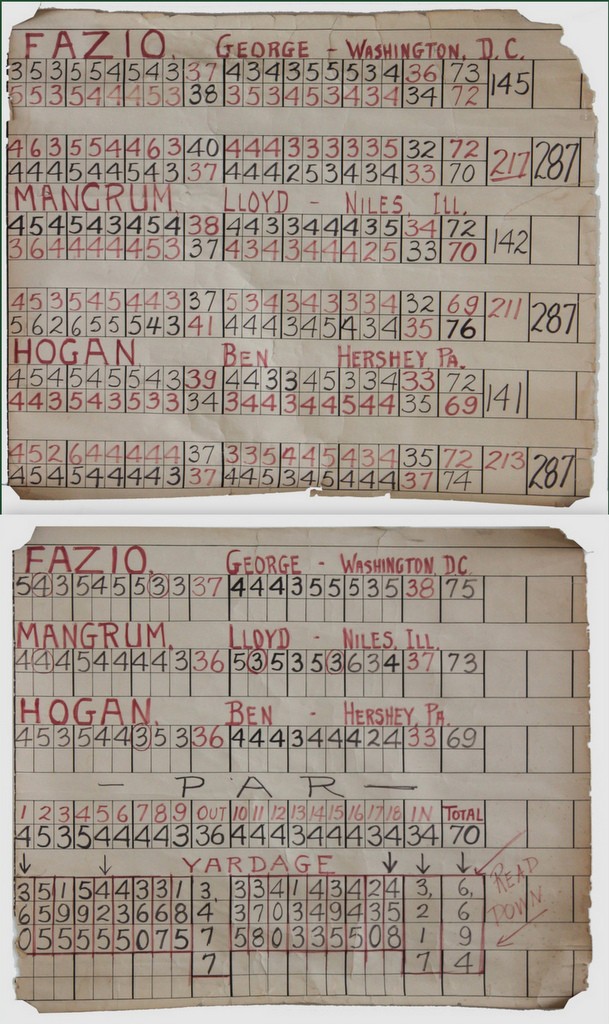 FAZIO. GEORGE - WASHINGTON, D.C.
3 5 3 5 5 4 5 4 3 37 4 3 4 3 5 5 5 3 4 36 73
5 5 3 5 4 4 4 5 3 38 3 5 3 4 5 3 4 3 4 34 72 145
4 6 3 5 5 4 4 6 3 40 4 4 4 3 3 3 3 3 5 32 72 217 287
4 4 4 5 4 5 4 4 3 37 4 4 4 2 5 3 4 3 4 33 70
MANGRUM. LLOYD - NILES, ILL.
4 5 4 5 4 3 4 5 4 38 4 4 3 3 4 4 4 3 5 34 72
3 6 4 4 4 4 4 5 3 37 4 3 4 3 4 4 4 2 5 33 70 142
4 5 3 5 4 5 4 4 3 37 5 3 4 3 4 3 3 3 4 32 69 211 287
5 6 2 6 5 5 5 4 3 41 4 4 4 3 4 5 4 3 4 35 76
HOGAN. BEN HERSHEY PA.
4 5 4 5 4 5 5 4 3 39 4 4 3 3 4 5 3 3 4 33 72
4 4 3 5 4 3 5 3 3 34 3 4 4 3 4 4 5 4 4 35 69 141
4 5 2 6 4 4 4 4 4 37 3 3 5 4 4 5 4 3 4 35 72 213 287
4 5 4 5 4 4 4 4 3 37 4 4 5 3 4 5 4 4 4 37 74
FAZIO. GEORGE - WASHINGTON D.C.
5 4 3 5 4 5 5 3 3 37 4 4 4 3 5 5 5 3 5 38 75
MANGRUM. LLOYD - NILES, ILL.
4 4 4 5 4 4 4 4 3 36 5 3 5 3 5 3 6 3 4 37 73
HOGAN. BEN - HERSHEY, PA.
4 5 3 5 4 4 3 5 3 36 4 4 4 3 4 4 4 2 4 33 69
- PAR -
1 2 3 4 5 6 7 8 9 OUT 10 11 12 13 14 15 16 17 18 IN TOTAL
4 5 3 5 4 4 4 4 3 36 4 4 4 3 4 4 4 3 4 34 70
YARDAGE
READ DOWN
3 5 1 5 4 4 3 3 1 3, 3 3 4 1 4 3 4 2 4 3, 6,
6 5 9 9 2 3 6 6 8 4 3 7 0 3 4 9 4 3 5 2 6
0 5 5 5 5 5 0 7 5 7 5 8 0 3 3 5 5 0 8 1 9
7 7 4